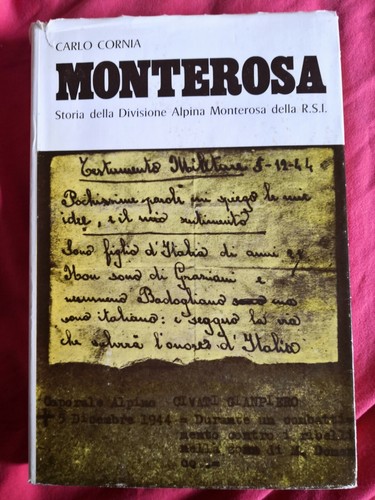 CARLO CORNIA
MONTEROSA
Storia della Divisione Alpina Monterosa della R.S.I.
Testamento Militare 5-12-44
Pochissime parole mi spiego le mie
idee, e il mio sentimento
Sono figlio d'Italia di anni 21
Non sono di Graziani e
nemmeno Badogliano ma
sono italiano: e seguo la via
che salverà l'onore d'Italia
Caporale Alpino CIVATI GIANPIERO
+ 5 Dicembre 1944 - Durante un combatti
mento contro i ribelli
nella zona di M.